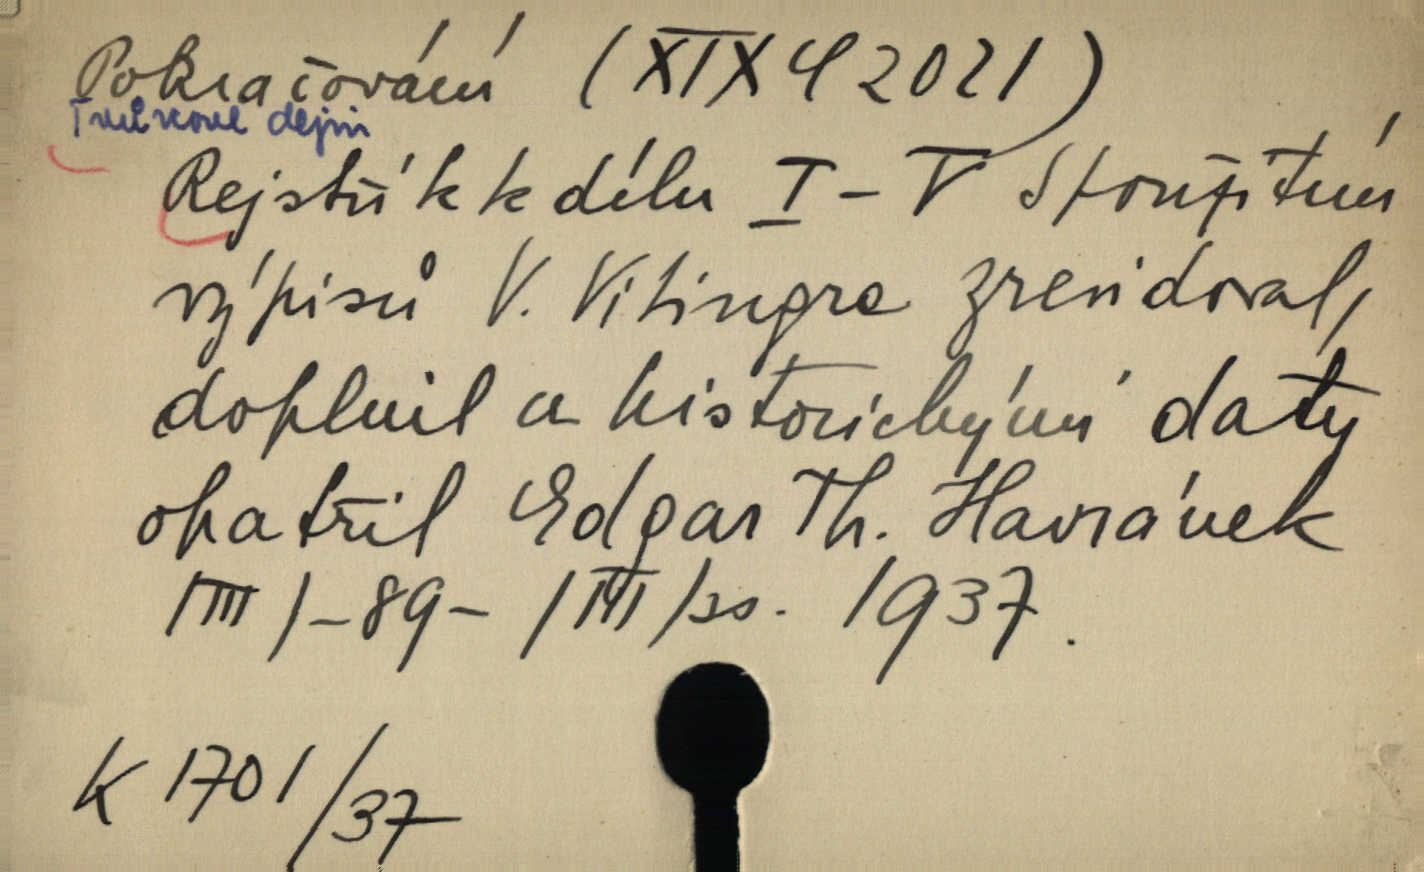 Pokračování (XIX 4 2021)
dějin
Rejstřík k dílu I – V S použitím
výpisů V. Vitingra zrevidoval,
doplnil a historickými daty
opatřil Edgar Th. Havránek
/III/-89-/III/ ss. 1937.
K 1701/37